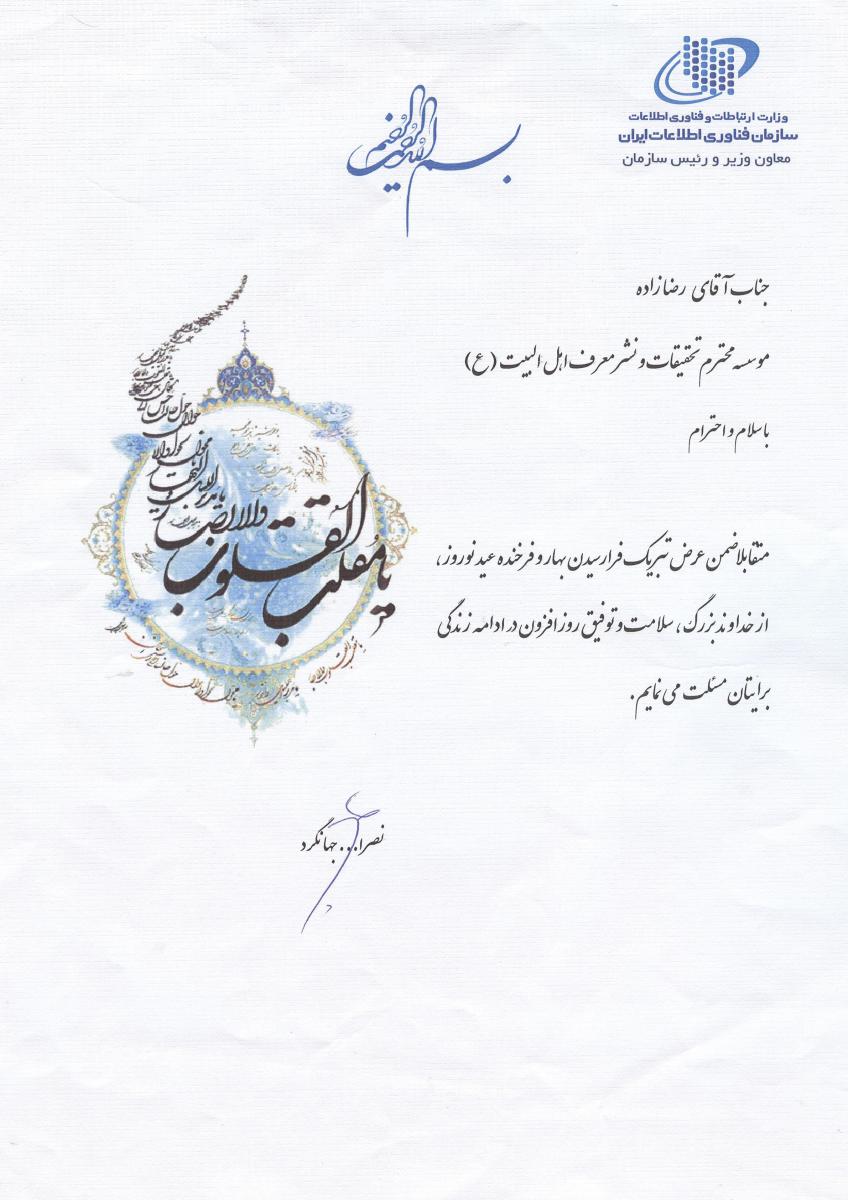 وزارت ارتباطات و فناوری اطلاعات
سازمان فناوری اطلاعات ایران
معاون وزیر و رئیس سازمان
بسم الله الرحمن الرحیم
جناب آقای رضازاده
موسسه محترم تحقیقات و نشر معرف اهل البیت (ع)
با سلام و احترام
متقابلا ضمن عرض تبریک فرارسیدن بهار و فرخنده عید نوروز،
از خداوند بزرگ، سلامت و توفیق روزافزون در ادامه زندگی
برایتان مسئلت می نمایم.
یا مقلب القلوب والابصار
نصرا... جهانگرد